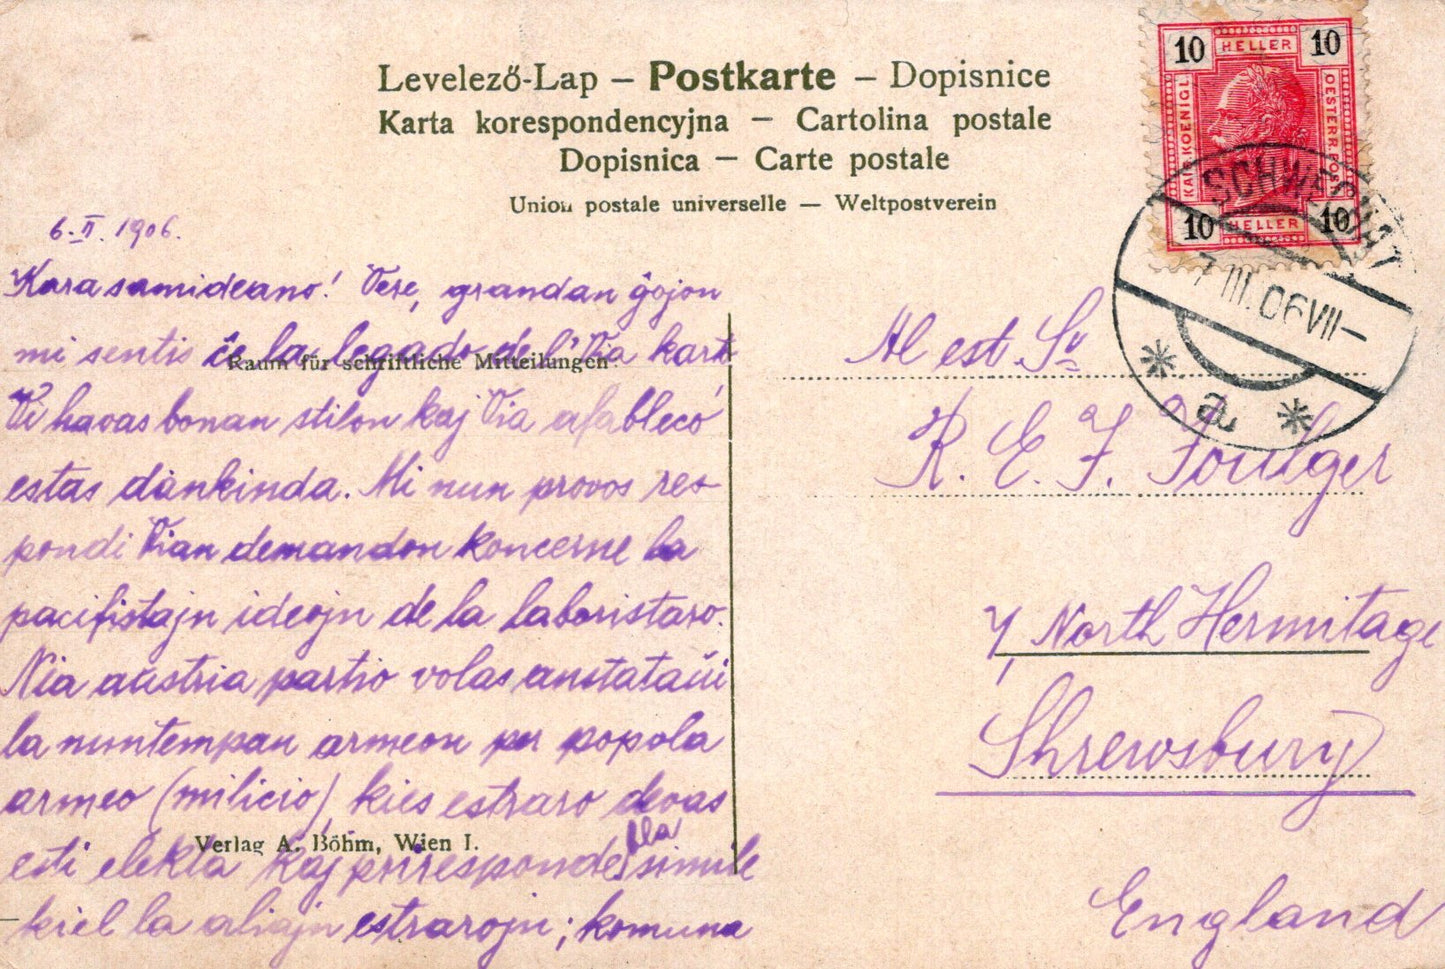 Levelező-Lap – Postkarte – Dopisnice
Karta korespondencyjna – Cartolina postale
Dopisnica – Carte postale
Union postale universelle – Weltpostverein
10 HELLER 10
KAIS. KOENIGL.
OESTERR. POST
10 HELLER 10
SCHWECHAT
7 III. 06 VII–
* a *
6. II. 1906.
Kara samideano! Vere, grandan ĝojon
mi sentis ĉe la legado de l' Via kart
Raum für schriftliche Mitteilungen.
Vi havas bonan stilon kaj Via afableco'
estas dankinda. Mi nun provos res-
pondi Vian demandon koncerne la
pacifistajn ideojn de la laboristaro.
Nia aŭstria partio volas anstataŭi
la nuntempan armeon per popola
armeo (milicio), kies estraro devas
Verlag A. Böhm, Wien I.
esti elekta kaj prirespondebla simile
kiel la aliajn estrarojn; komuna
Al est. Sr
R. E. F. Foulger
7, North Hermitage
Shrewsbury
England